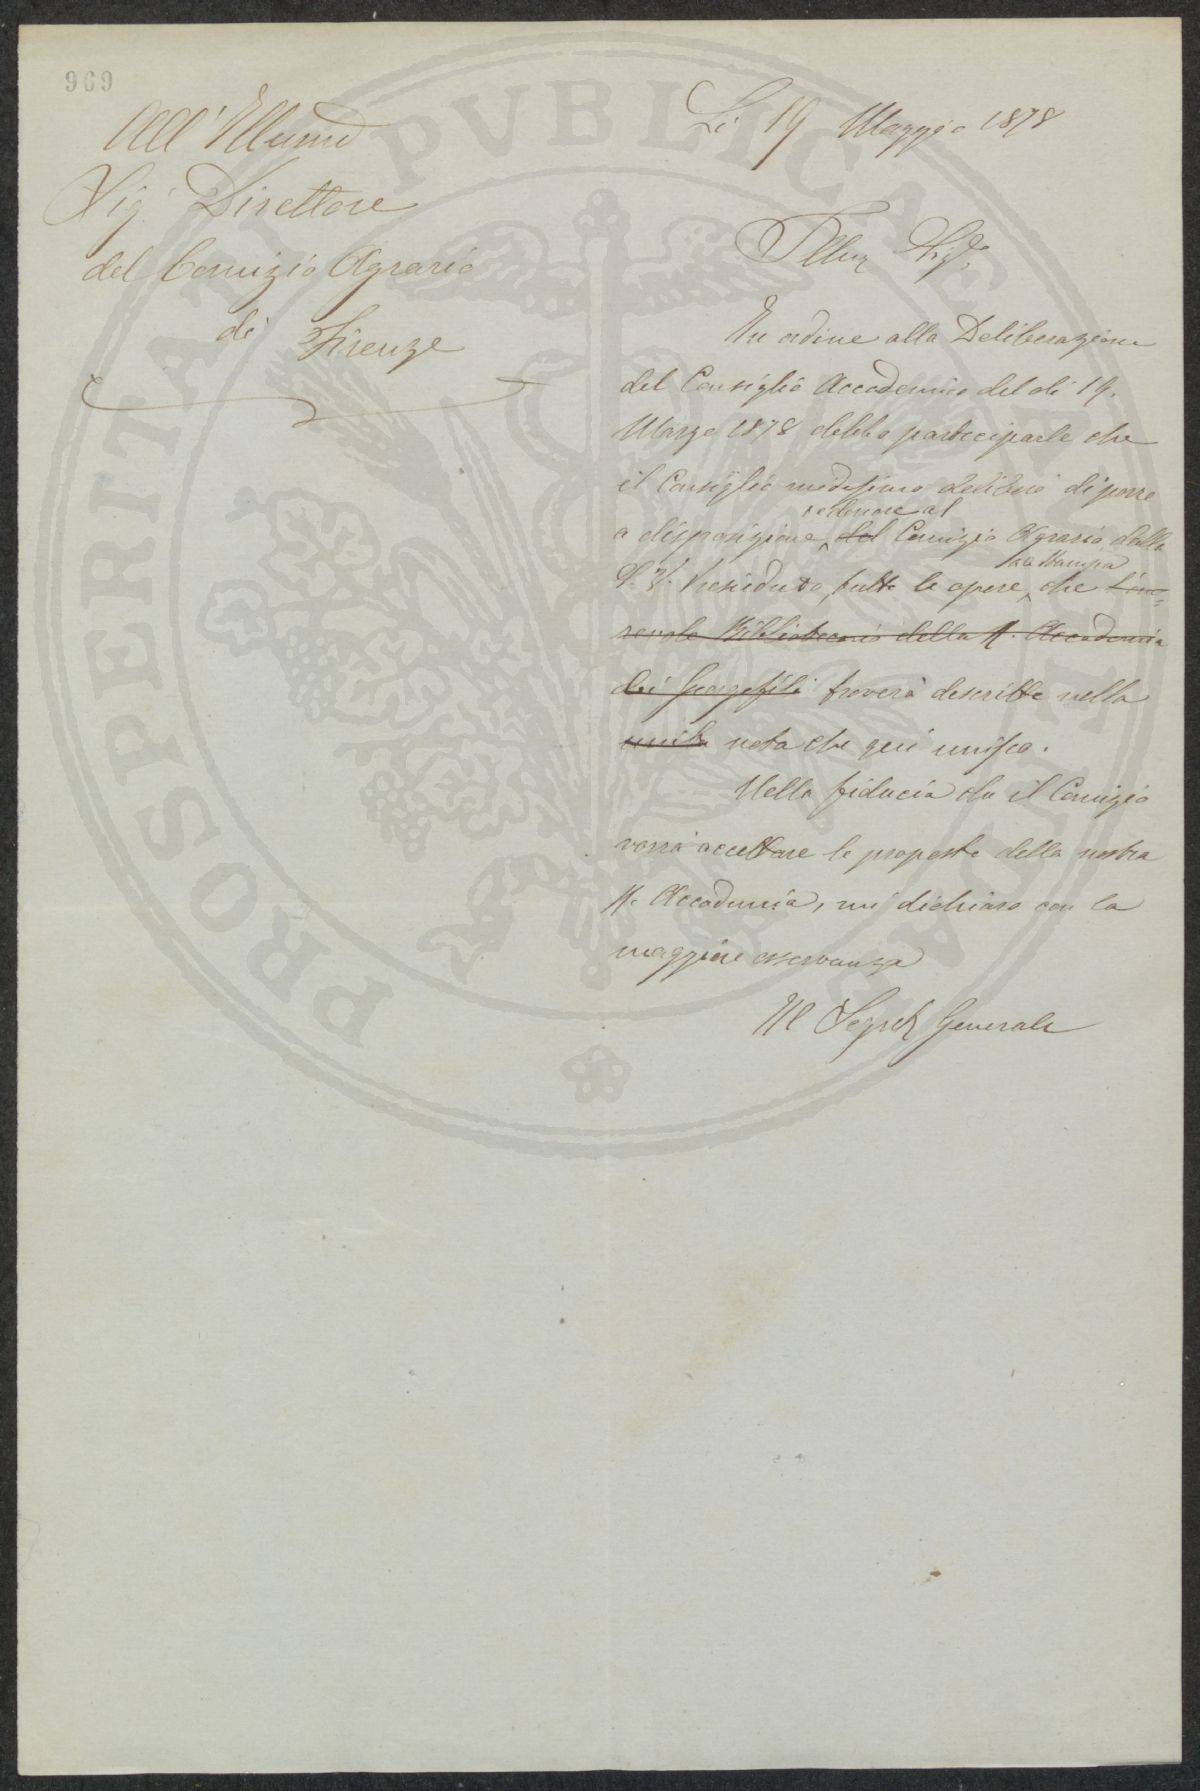 969
All'Illmo
Sig. Direttore
del Comizio Agrario
di Firenze
Li 19 Maggio 1878
Illmo Sigre
In ordine alla Deliberazione
del Consiglio Accademico del di 19.
Marzo 1878 debbo partecipare che
il Consiglio medesimo deliberò di porre
a disposizione del Comizio Agrario dalla
S. V. Presieduto, tutte le opere, che l'ono-
revole Bibliotecario della R. Accademia
dei Georgofili troverà descritte nella
unita nota che qui unisco.
Nella fiducia che il Comizio
vorrà accettare le proposte della nostra
R. Accademia, mi dichiaro con la
maggiore osservanza
Il Segret Generale
PROSPERITATI PVBLICAE AVGENDAE